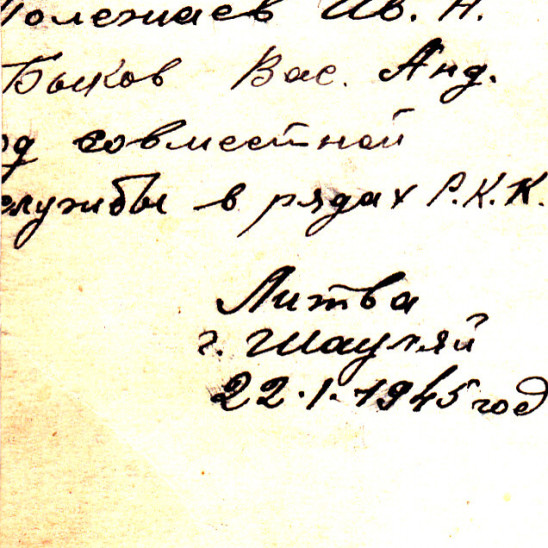 Полежаев Ив. Н.
Быков Вас. Анд.
од совместной
службы в рядах Р.К.К.
Литва
г. Шауляй
22.1.1945 год